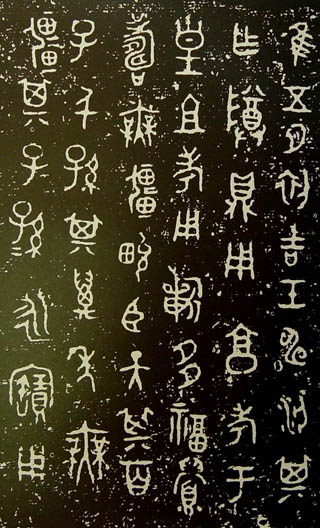 隹五月初吉壬申梁其
乍尊鼎用享考于
皇且考用祈多福眉
壽無疆畯臣天其百
子千孫其萬年無
疆其子孫永寶用